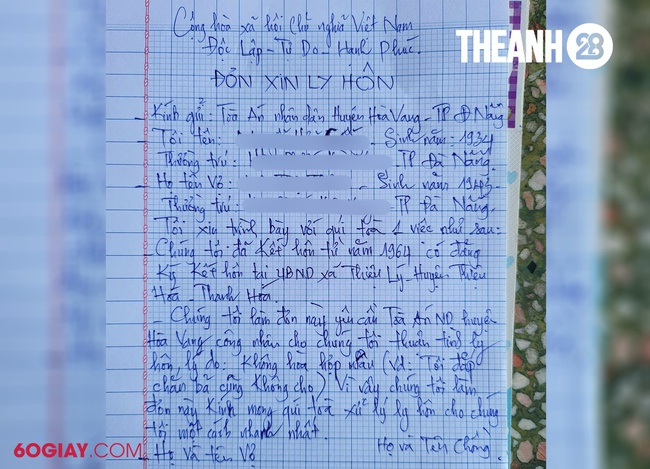 Cộng hòa xã hội Chủ nghĩa Việt Nam
Độc Lập - Tự Do - Hạnh Phúc.
THEANH28
ĐƠN XIN LY HÔN
- Kính gửi: Tòa Án nhân dân Huyện Hòa Vang - TP Đ Nẵng
- Tôi tên: - Sinh năm: 1934
Thường trú: TP Đà Nẵng.
- Họ tên Vợ: - Sinh năm
Thường trú: TP Đà Nẵng.
Tôi xin trình bày với quí tòa 1 việc như sau:
- Chúng tôi đã Kết hôn từ năm 1964 có đăng
Ký Kết hôn tại UBND xã Thiệu Lý - Huyện Thiệu
Hóa - Thanh Hóa.
- Chúng tôi làm đơn này yêu cầu Tòa Án ND huyện
Hòa Vang công nhận cho chúng tôi thuận tình ly
hôn, lý do: Không hòa hợp nhau (Vd: Tôi đắp
chăn bà cũng Không cho) Vì vậy chúng tôi làm
đơn này Kính mong quí toà xử lý ly hôn cho chúng
tôi một cách nhanh nhất.
Họ và Tên Chồng
- Họ và tên Vợ
60GIAY.COM